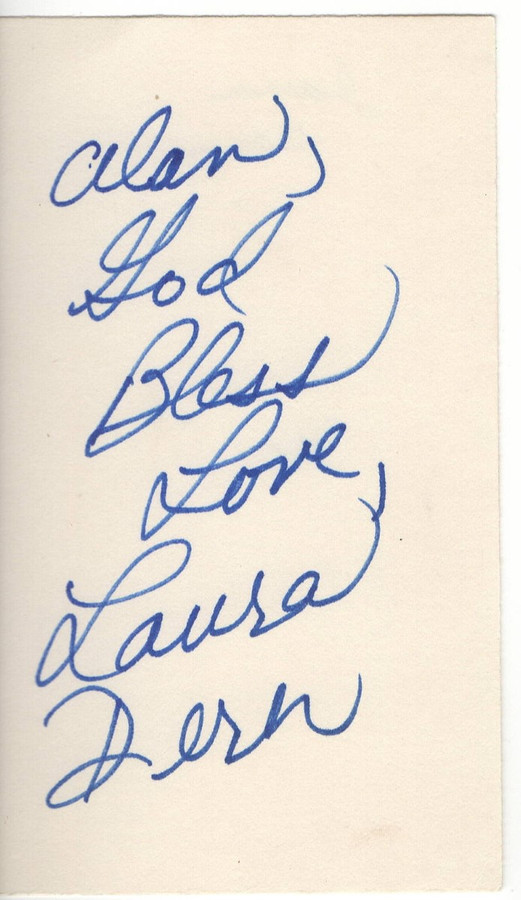 Alan,
God
Bless
Love,
Laura
Dern